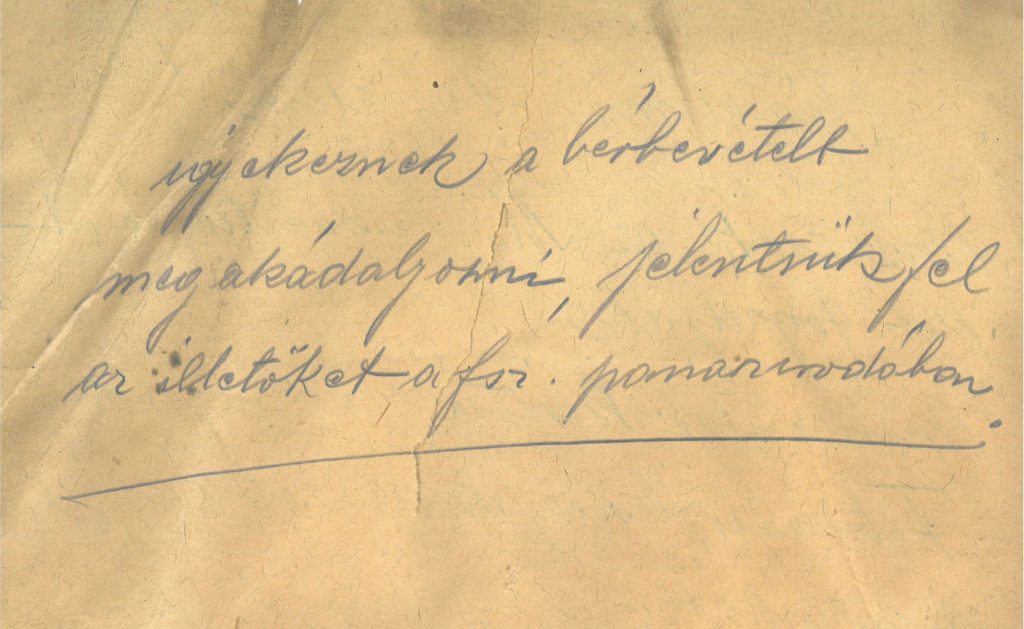 igyekeznek a bérbevételt
megakadályozni, jelentsük fel
az illetőket a fsz. panaszirodában.